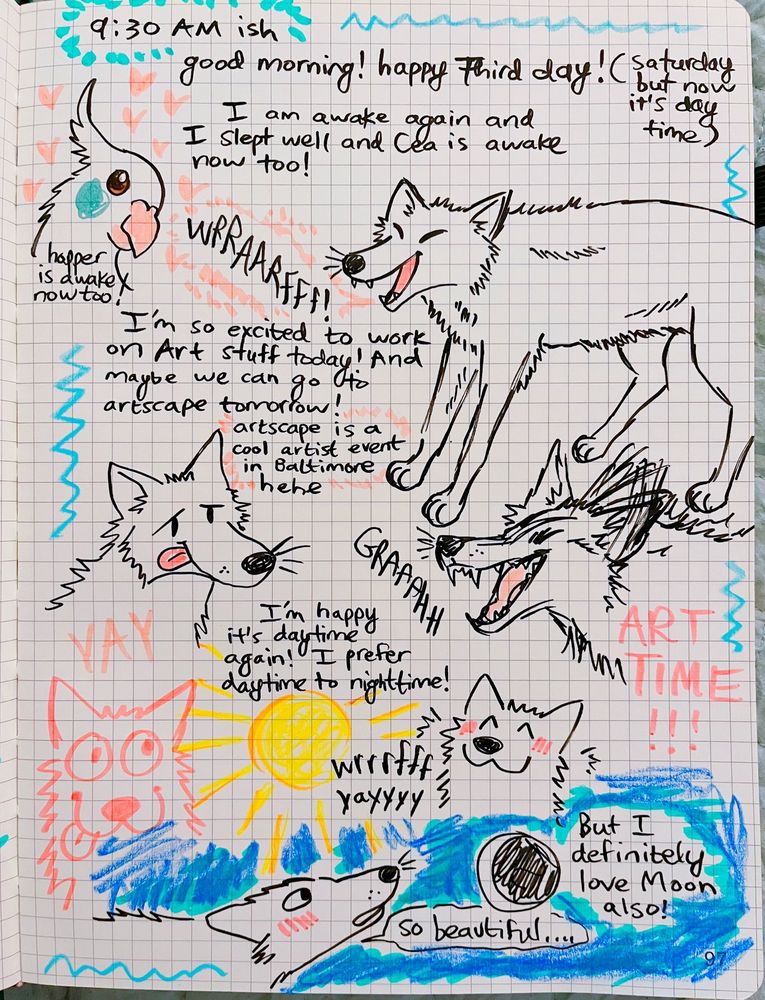 9:30 AM ish
good morning! happy Third day! (saturday
but now
it's day
time)
I am awake again and
I slept well and Cea is awake
now too!
happer
is awake
now too!
WRRAARFFF!
I'm so excited to work
on Art stuff today! And
maybe we can go to
artscape tomorrow!
artscape is a
cool artist event
in Baltimore
hehe
GRAAAHH
YAY
I'm happy
it's daytime
again! I prefer
daytime to nighttime!
ART
TIME
!!!
wrrrfff
yayyyy
But I
definitely
love Moon
also!
so beautiful....
97